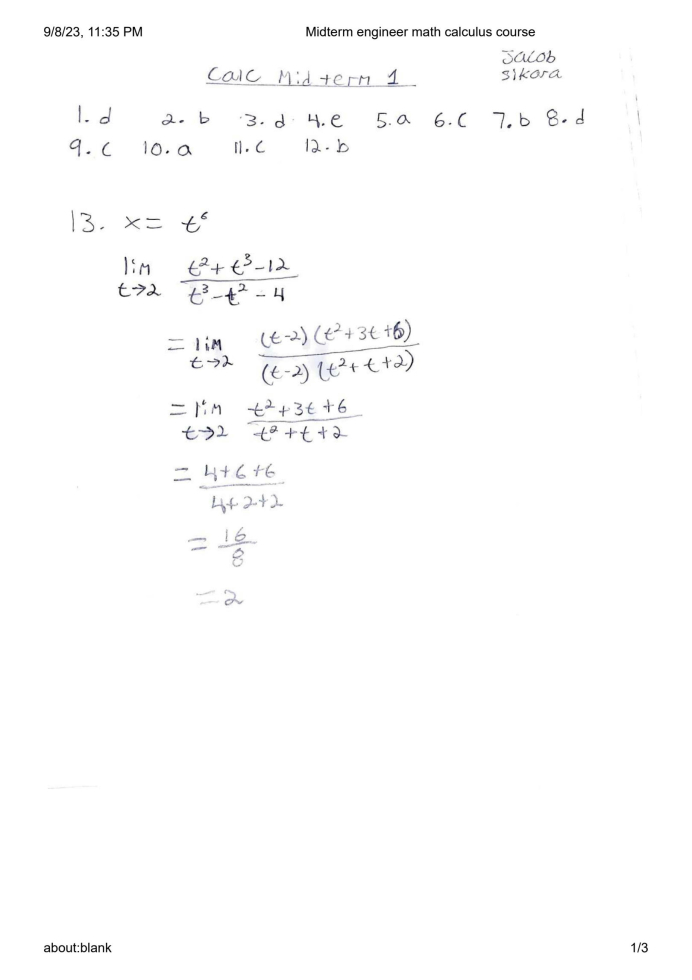 9/8/23, 11:35 PM Midterm engineer math calculus course
Jacob
sikora
Calc Midterm 1
1. d 2. b 3. d 4. e 5. a 6. c 7. b 8. d
9. c 10. a 11. c 12. b
13. x = t⁶
lim t→2 (t² + t³ - 12)/(t³ - t² - 4)
= lim t→2 ((t-2)(t² + 3t + 6))/((t-2)(t² + t + 2))
= lim t→2 (t² + 3t + 6)/(t² + t + 2)
= (4 + 6 + 6)/(4 + 2 + 2)
= 16/8
= 2
about:blank 1/3